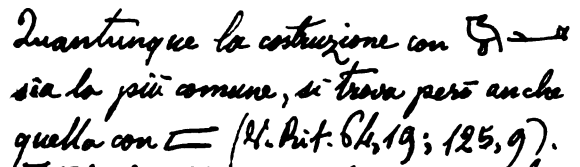 Quantunque la costruzione con
sia la più comune, si trova però anche
quella con (V. Rit. 64,19; 125,9).